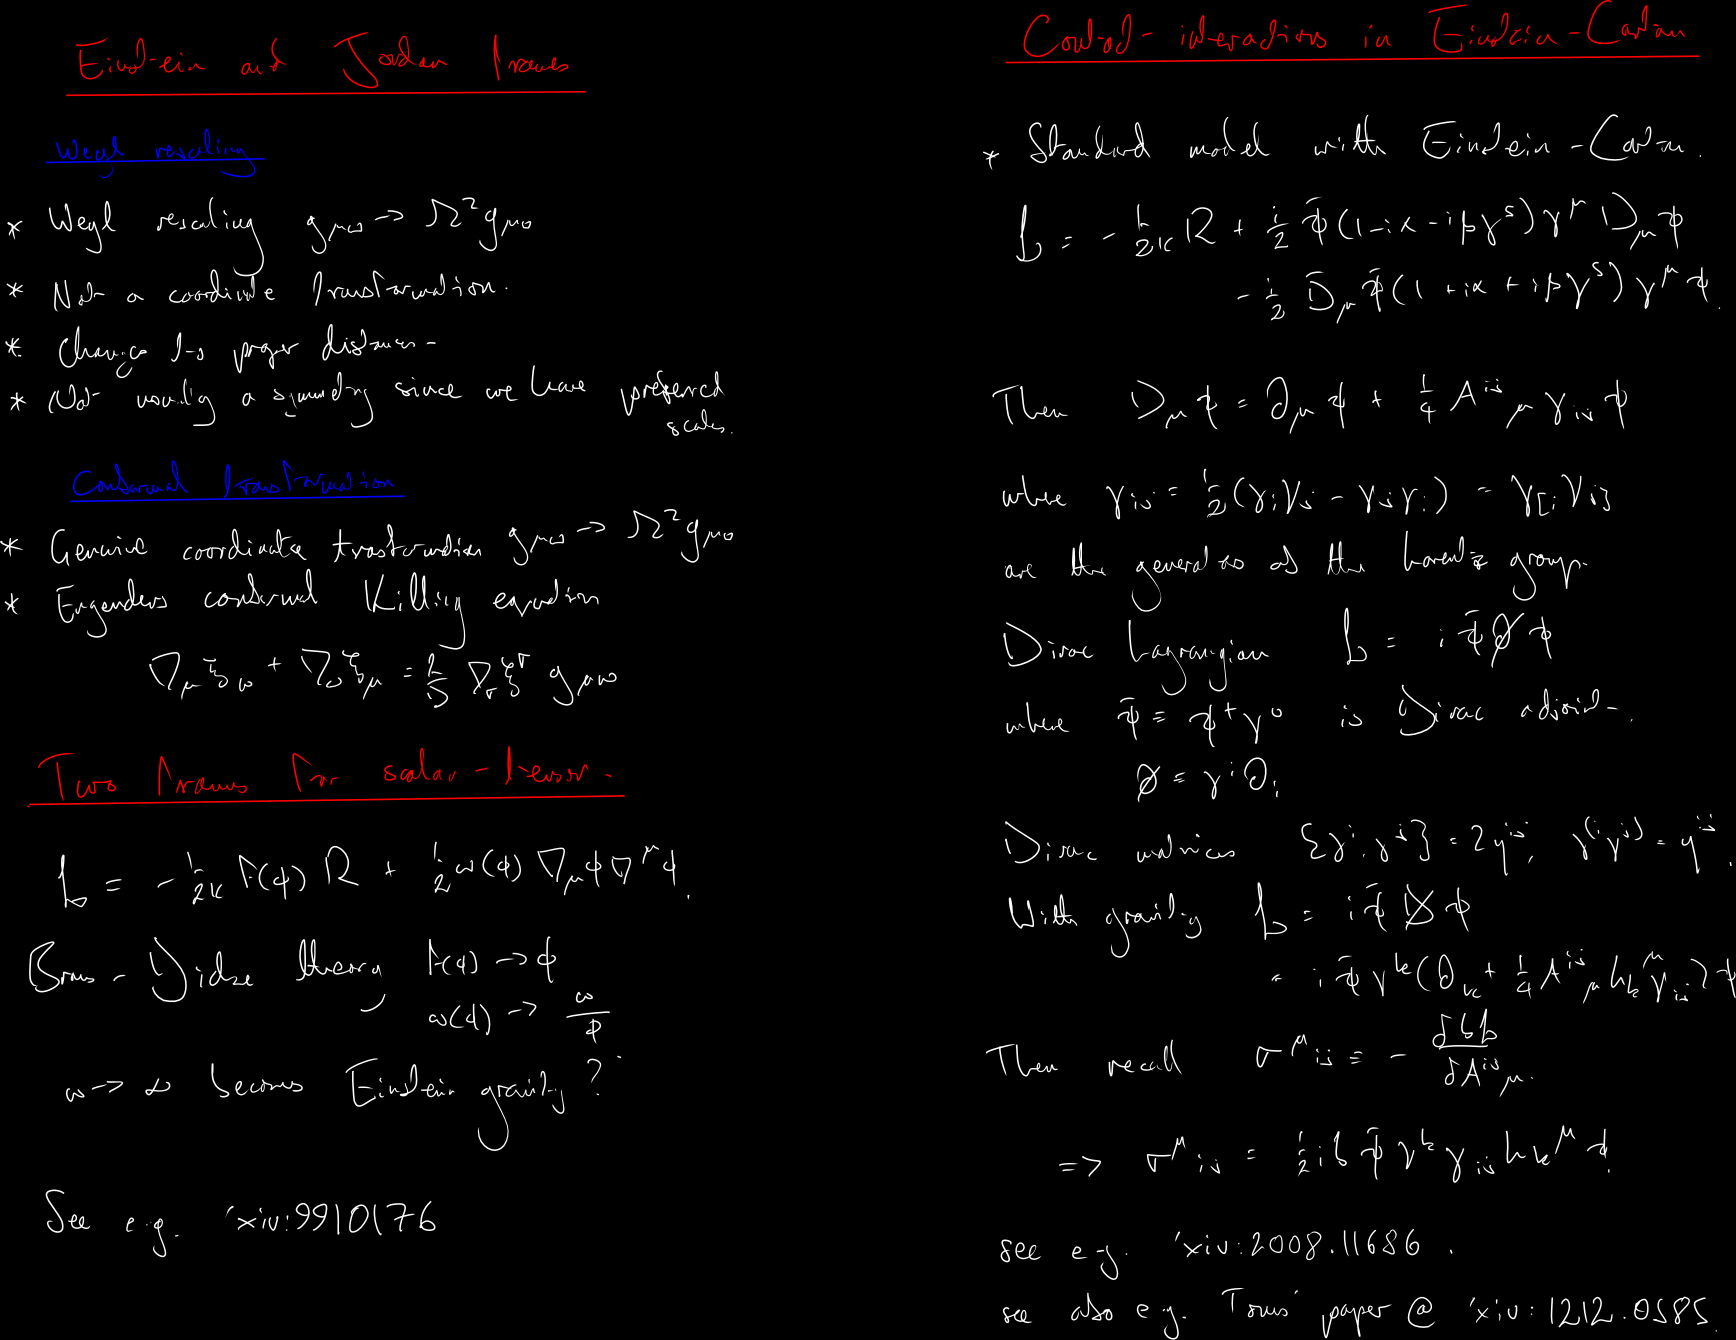 Einstein and Jordan frames
Weyl rescaling
* Weyl rescaling g_{μν} → Ω² g_{μν}
* Not a coordinate transformation.
* Changes the proper distance.
* Not usually a symmetry since we have preferred scales.
Conformal transformation
* Genuine coordinate transformation g_{μν} → Ω² g_{μν}
* Engenders conformal Killing equation
∇_μ ξ_ν + ∇_ν ξ_μ = 2/D ∇_σ ξ^σ g_{μν}
Two frames for scalar-tensor.
L = - 1/2κ f(φ) R + 1/2 ω(φ) ∇_μ φ ∇^μ φ.
Brans-Dicke theory f(φ) → φ
ω(φ) → ω/φ
ω → ∞ becomes Einstein gravity?
See e.g. 'xiv:9910176
Contact-interactions in Einstein-Cartan
* Standard model with Einstein-Cartan.
L = - 1/2κ R + i/2 ψ̄ (1 - iα - iβγ⁵) γ^μ D_μ ψ
- i/2 D_μ ψ̄ (1 + iα + iβγ⁵) γ^μ ψ.
Then D_μ ψ = ∂_μ ψ + 1/4 A^{ij}_μ γ_{ij} ψ
where γ_{ij} = 1/2 (γ_i γ_j - γ_j γ_i) = γ_{[i} γ_{j]}
are the generators of the Lorentz group.
Dirac Lagrangian L = i ψ̄ ∂̸ ψ
where ψ̄ = ψ† γ⁰ is Dirac adjoint.
∂̸ = γ^i ∂_i
Dirac matrices {γ^i, γ^j} = 2η^{ij}, γ^{(i}γ^{j)} = η^{ij}.
With gravity L = i ψ̄ D̸ ψ
= i ψ̄ γ^k (∂_k + 1/4 A^{ij}_μ h_k^μ γ_{ij}) ψ
Then recall σ^μ_{ij} = - δbL/δA^{ij}_μ.
=> σ^μ_{ij} = 1/2 i b ψ̄ γ^k γ_{ij} h_k^μ ψ.
see e.g. 'xiv:2008.11686.
see also e.g. paper @ 'xiv:1212.0585.